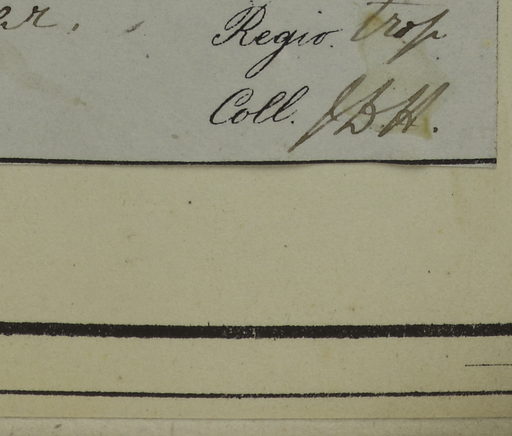 Regio. trop.
Coll. J D H.